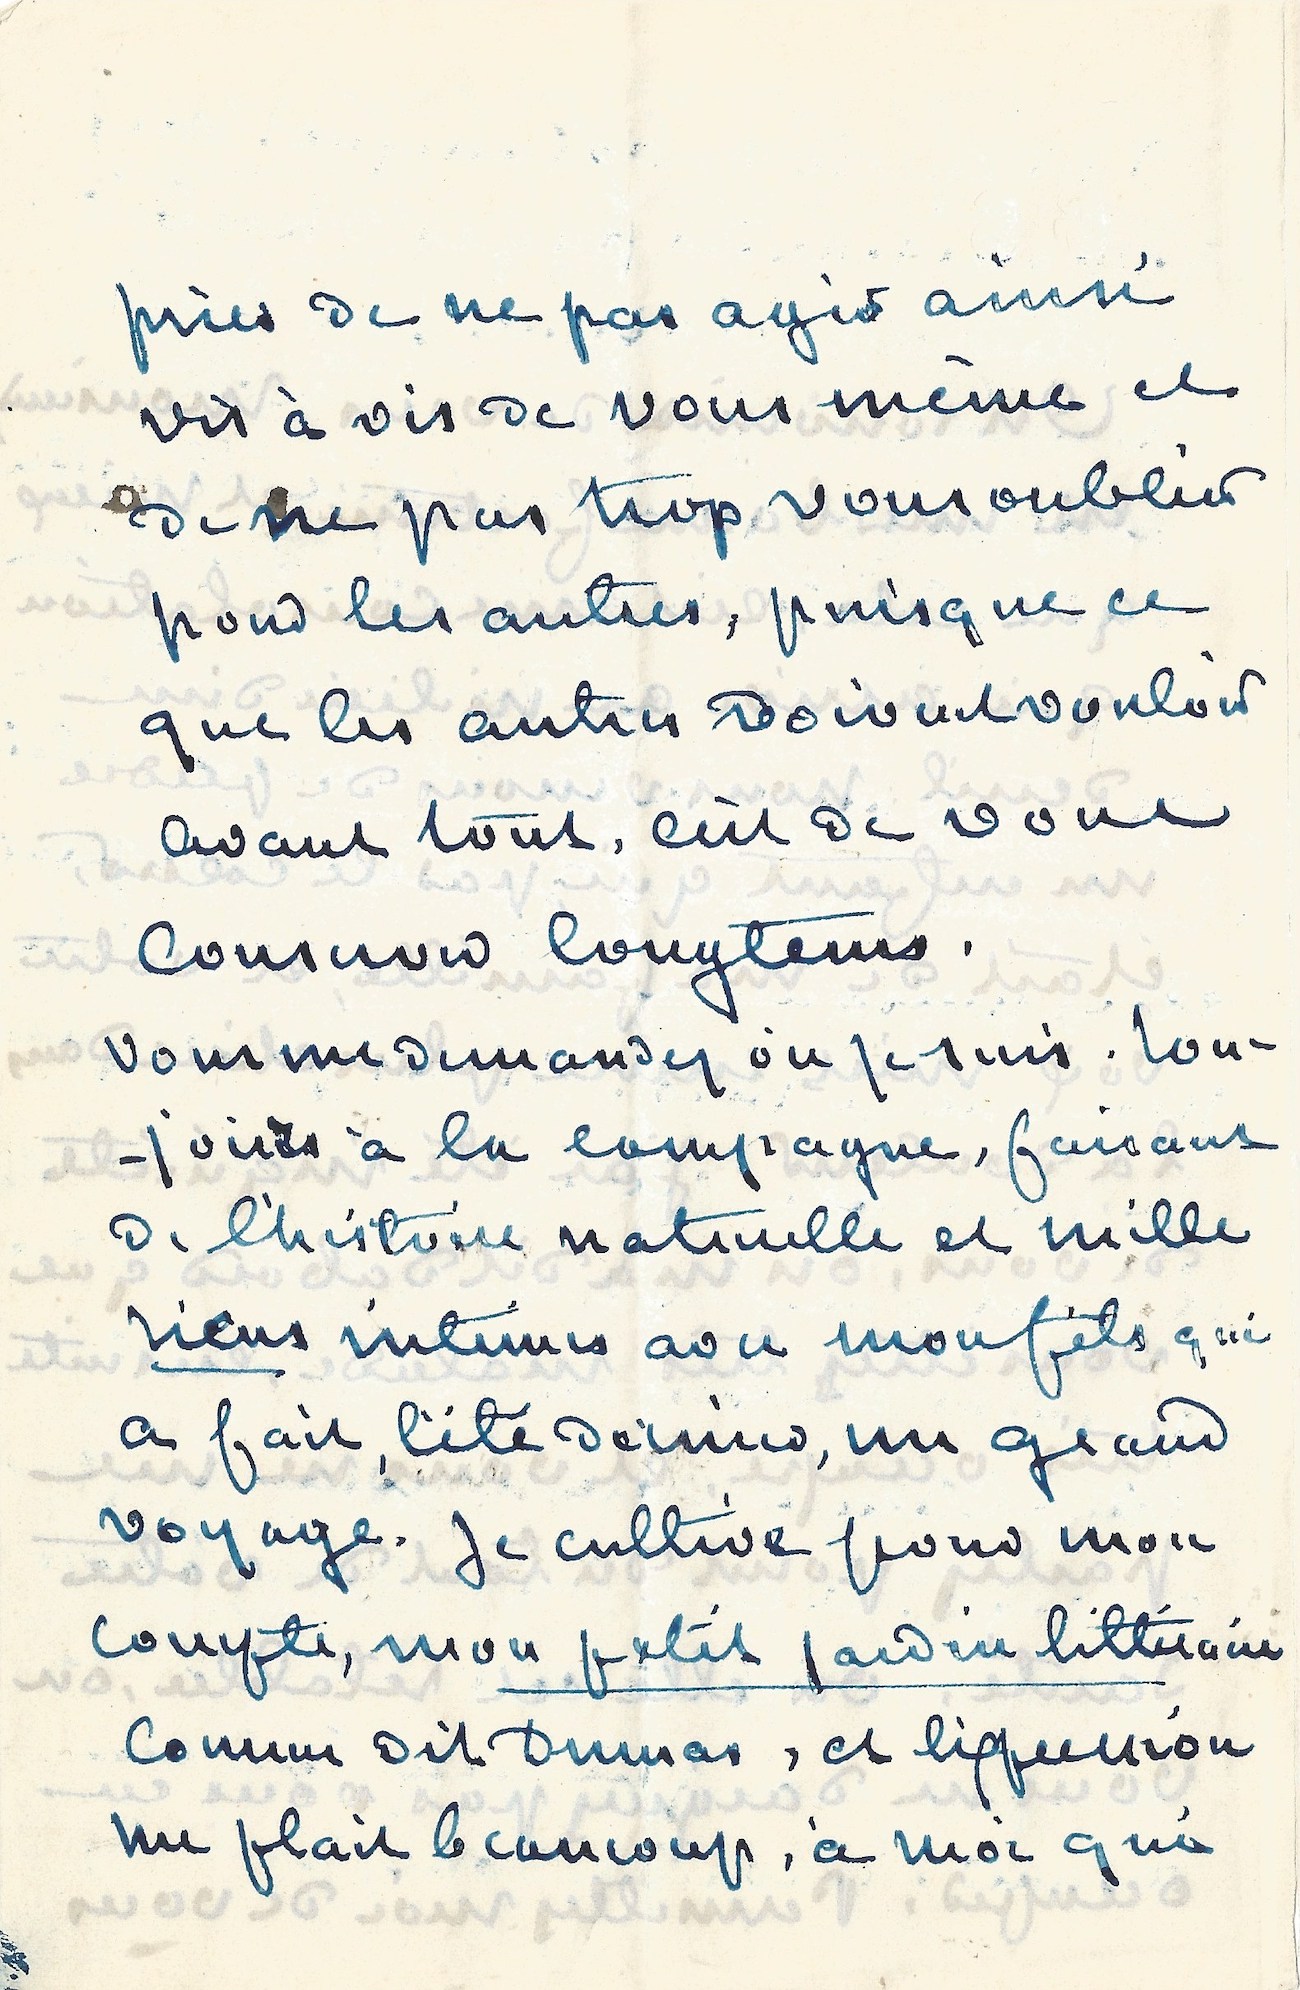 prier de ne pas agir ainsi
vis à vis de vous même et
de ne pas trop vous oublier
pour les autres, puisque ce
que les autres doivent vouloir
avant tout, c'est de vous
conserver longtems.
Vous me demandez où je suis. Tou-
-jours à la campagne, faisant
de l'histoire naturelle et mille
riens intimes avec mon fils qui
a fait, l'été dernier, un grand
voyage. Je cultive pour mon
compte, mon petit jardin littéraire
comme dit Dumas, et l'expression
me plait beaucoup, à moi qui